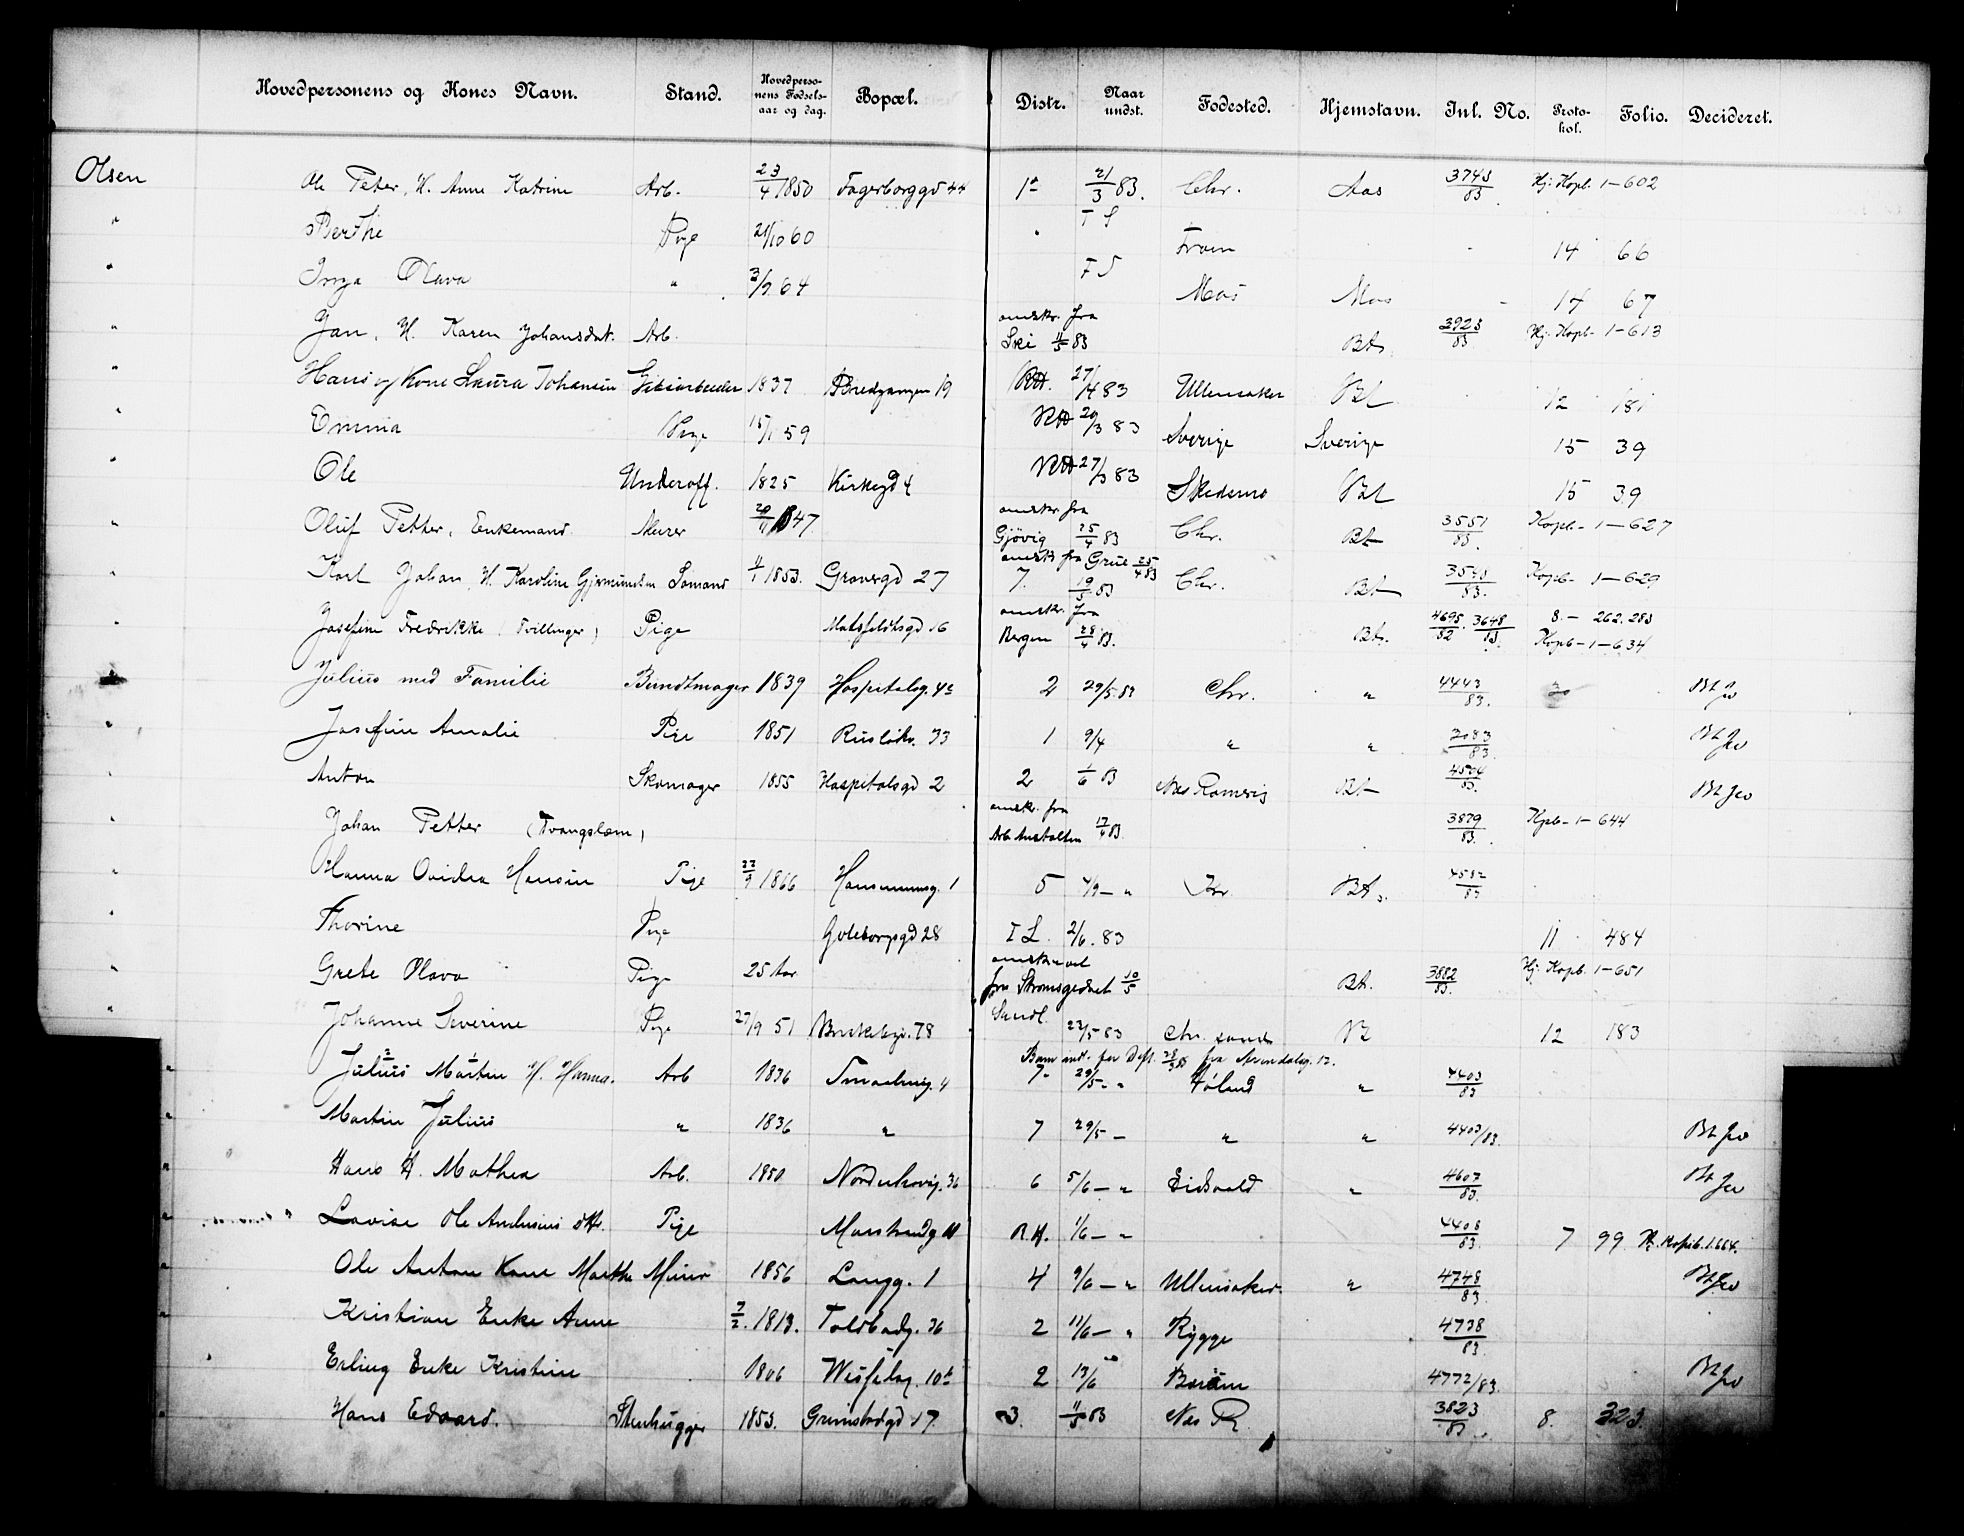 Hovedpersonens og Kones Navn. Stand. Hovedpersonens Fødselsaar og dag. Bopæl. Distr. Naar undst. Fødested. Hjemstavn. Inl. No. Protokol. Folio. Decideret.
Olsen Ole Peter, H. Anne Katrine Arb. 23/4 1850 Fagerborggd 44 1a 21/3 83. Chr. Aas 3743/83 Hj. Kopb. 1-602
" Berthe Pige 21/10 60 " T S Froen 14 66
" Inga Olava " 3/9 64 T S Mos Mos 14 67
" Jan, H. Karen Johansdat. Arb. omskr. fra Ski 11/5 83 Bt. 3923/83 Hj. Kopb- 1-613
" Hans og Kone Laura Johansen 1837 Bredgangen 19 RH. 27/4 83 Ullensaker Bt 12 181
" Emma Pige 15/1 59 RH 20/3 83 Sverige Sverige 15 39
" Ole Underoff. 1825 Kirkegd 4 RH 27/3 83 Skedsmo Bt 15 39
" Oluf Petter, Enkemand Murer 20/11 1847. omskr fra Gjövig 25/4 83 Chr. Bt 3551/83. Kopb- 1-627
" Karl Johan, H. Karoline Gjermundsen Sömand 11/1 1853. Gravergd 27 omskr fra Grue 25/4 83 7. 19/5 83 Chr. Bt 3543/83. Kopb- 1-629
" Josefine Fredrikke (Tvillinger) Pige 16 omskr. fra Bergen 28/4 83. Bt. 4695/82. 3648/83. 8.- 262. 283 Kopb-1-634
" Julius med Familie Bundtmager 1839 Hospitalsg. 4c 2 29/5 83 Chr. " 4443/83. Bt Jev
" Josefine Amalie Pige 1851 Rusløkv. 33 1 9/4 " " 83 Bt Jev
" Anton Skomager 1855 Hospitalsgd 2 2 1/6 83 Nes Romerig Bt 4504/83. Bt Jev
" Johan Petter (Tvangslem) omskr. fra Arb. Anstalten 17/4 83. 3879/83. Kpb-1-644
" Hanna Ovidia Hansen Pige 22/9 1866 Hansmannsg. 1 5 4/9 - " Bt. 4582/83
" Thorine Pige Goteborgsgd 28 T L. 2/6. 83 11 484
" Grete Olava Pige 25 Aar omskrevet fra Strømsgodset 10/5 Bt. 3882/83. Hj. Kopb. 1-651
" Johanne Severine Pige 27/9 51 78 Sandl. 22/5 83 Chr. sand Bt 12 183
Barn fra Arendalsg. 12.
" Julius Martin H. Hanna. Arb 1836 Smaalensg. 4 7 29/5 - " Høland " 4403/83
" Martin Julius " 1836 " 7 29/5 - " " 4403/83. Bt Jev
" Hans H. Mathea Arb. 1850 Norderhovsg. 36 6 5/6 - " Eidsvold " 4607/83. Bt Jev
" Lovise Ole Andersens dtr. Pige Marstrandg. 11 R.H. 1/6 - " 4408/83. 7 99 Hj. Kopib. 1.664.
" Ole Anton Kone Marthe Murer 1856 Langg. 1 4 9/6 - " Ullensaker. " 4748/83 Bt Jev
" Kristian Enke Anne 7/2. 1813. Toldbodg. 36 2 11/6 - " Rygge 4738/83
" Erling Enke Kristine 1806 Wesselsg. 10b 2 13/6 Bærum 4772/83. Bt Jev
" Hans Edvard. Stenhugger 1853. Grimstadgd 17. 3. 11/5 83 Nes R. 3823/83 8. 323.